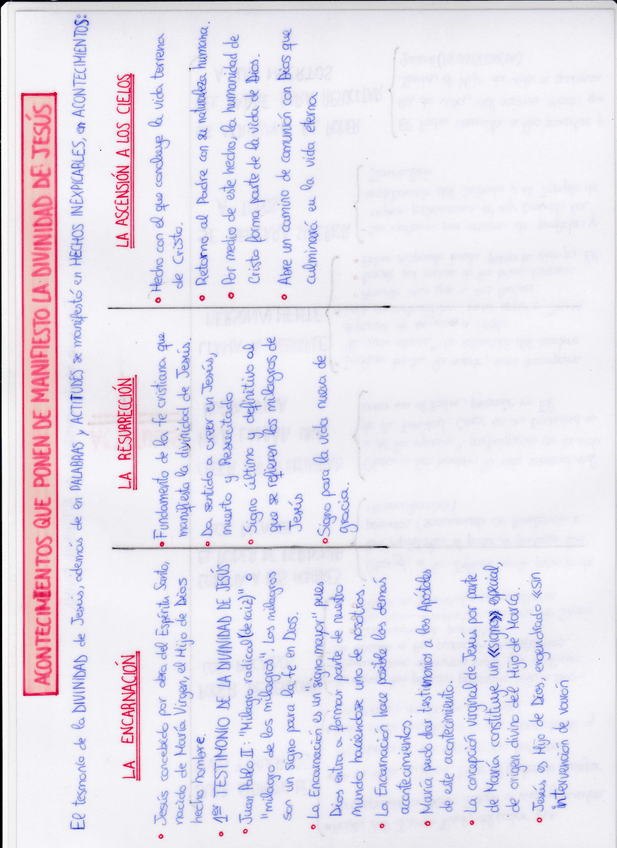 ACONTECIMIENTOS QUE PONEN DE MANIFIESTO LA DIVINIDAD DE JESÚS
El tesmonio de la DIVINIDAD de Jesús, además de en PALABRAS y ACTITUDES se manifestó en HECHOS INEXPICABLES, en ACONTECIMIENTOS:
LA ENCARNACIÓN
• Jesús concebido por obra del Espíritu Santo,
nacido de María Virgen, el Hijo de Dios
hecho hombre.
• 1er TESTIMONIO DE LA DIVINIDAD DE JESÚS
• Juan Pablo II: "Milagro radical (de raíz)" o
"milagro de los milagros". Los milagros
son un signo para la fe en Dios.
• La Encarnación es un signo mayor pues
Dios entra a formar parte de nuestro
mundo haciéndose uno de nosotros
• La Encarnación hace posible los demás
acontecimientos.
• María pudo dar testimonio a los Apóstoles
de este acontecimiento.
• La concepción virginal de Jesús por parte
de María constituye un «signo» especial,
de origen divino del Hijo de María,
• Jesús es Hijo de Dios, engendrado «sin
intervención de varón
LA RESURRECCIÓN
• Fundamento de la fe cristiana que
manifiesta la divinidad de Jesús.
• Da sentido a creer en Jesús,
muerto y Resucitado
• Signo último y definitivo al
que se refieren los milagros de
Jesús
• Signo para la vida nueva de
gracia.
LA ASCENSIÓN A LOS CIELOS
• Hecho con el que concluye la vida terrena
de Cristo.
• Retorno al Padre con su naturaleza humana.
• Por medio de este hecho, la humanidad de
Cristo forma parte de la vida de Dios.
• Abre un camino de comunión con Dios que
culminará en la vida eterna